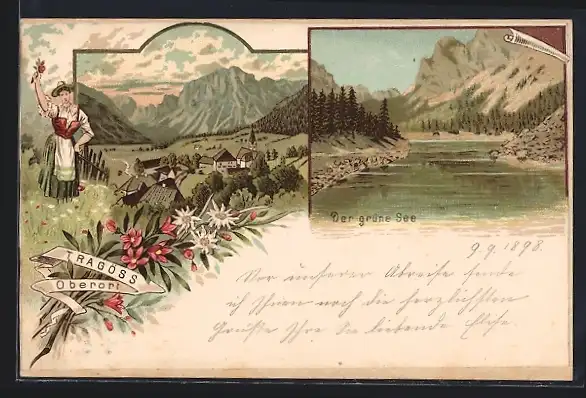 Der grüne See
TRAGÖSS
Oberort
9.9.1898.
Vor unserer Abreise sende
ich Ihnen noch die herzlichsten
Grüße Ihre Sie liebende Elise.